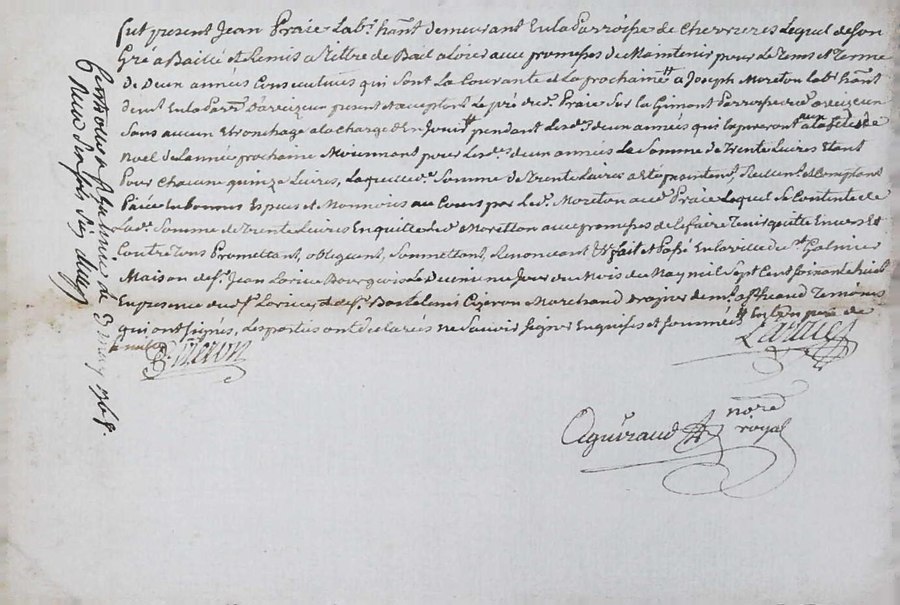 fut present Jean Praie Lab.r hânt demeurant En la Parroisse de Chevrieres Lequel de Son
Gré a Baillé et Remis a Tiltre de Bail a loier avec promesses de Maintenir pour le Tems et Terme
de Deux années Consecutives qui Sont La Courante et La prochaine a Joseph Moreton lab.r hânt
demt En la Parr. present et acceptant Le pré dud. Praie Sur la Gimont Parroisse
Sans aucun Etronchage a la Charge d'En Jouir pendant Lesd. deux années qui Expireront a la fête de
Noel de L'année prochaine Moiennant pour Lesd. deux années La Somme de Trente Livres Etant
Pour Chacune quinze Livres, Laquelle d. Somme de Trente Livres a Eté presentem.t Reellem.t et Comptant
Paiée En bonnes Especes et Monnoies au Cours par Led. Moreton aud. Praie Lequel Se Contente de
lad. Somme de Trente Livres En quitte Led. Moretton avec promesses de Le faire Tenir quitte Envers Et
Contre Tous Promettant, obligeant, Soumettant, Renonceant &. fait et Passé En la ville de St Galmier
Maison de S.r Jean Loricu Bourgeois Le Jour du Mois de May mil Sept Cent Soixante huit
En presence dud. S.r et de S.r Bartelemi Cizeron Marchand Temoins
qui ont Signés, Les parties ont declarés ne Savoir Signer Enquises et Sommées
Cizeron
Aguiraud nore
royal
de 3 may 1768.
Reçu